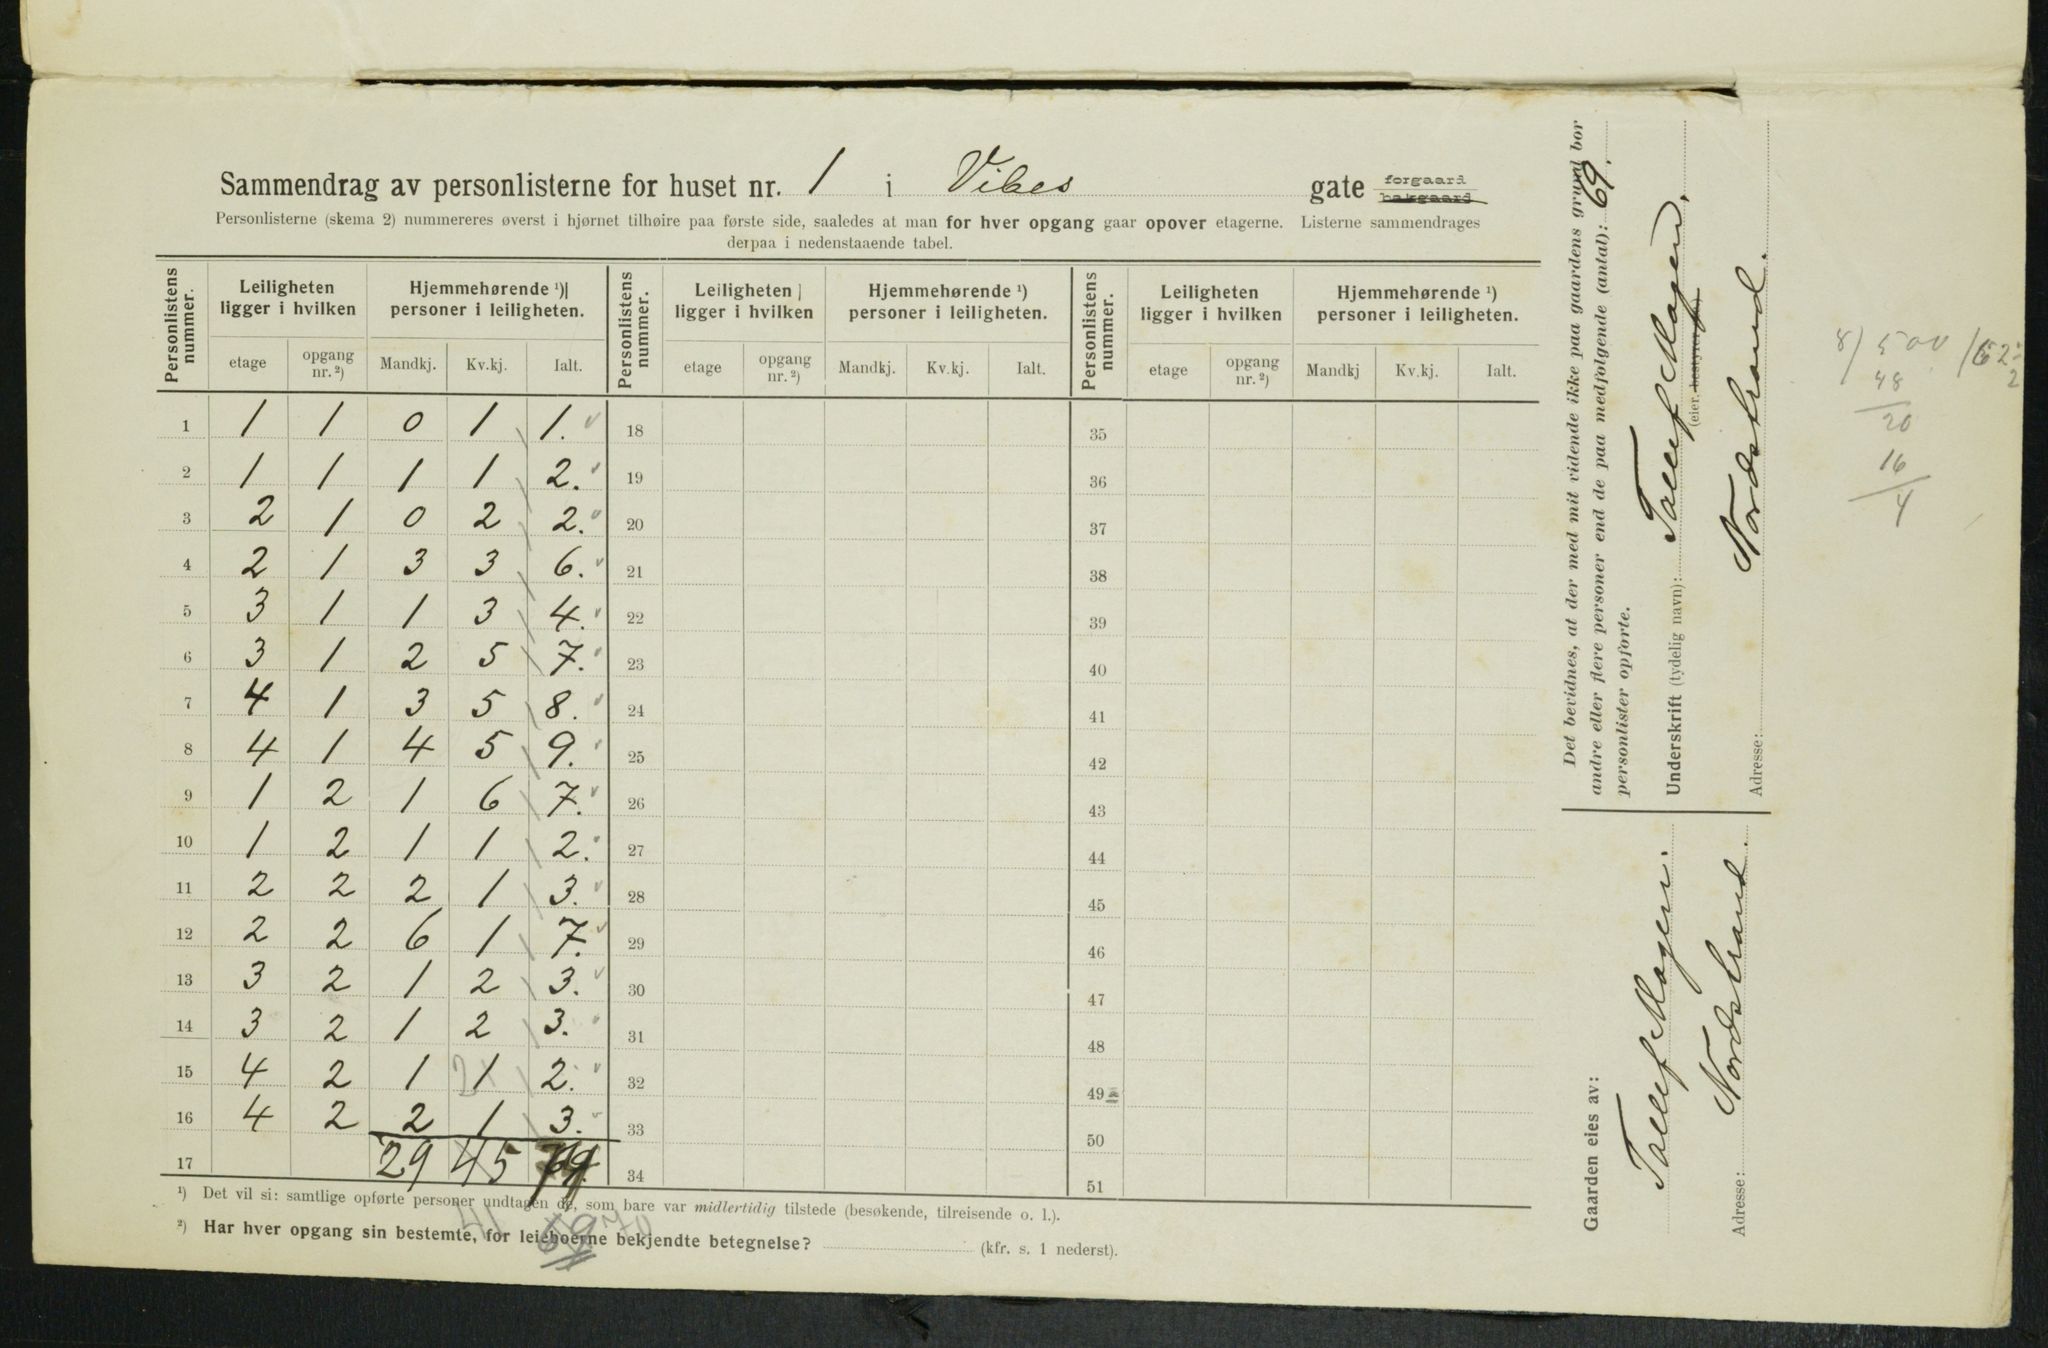 Sammendrag av personlisterne for huset nr. 1 i Vibes gate forgaard bakgaard
Personlisterne (skema 2) nummereres øverst i hjørnet tilhøire paa første side, saaledes at man for hver opgang gaar opover etagerne. Listerne sammendrages
derpaa i nedenstaaende tabel.
Personlistens nummer. Leiligheten ligger i hvilken Hjemmehørende ¹) personer i leiligheten. Personlistens nummer. Leiligheten ligger i hvilken Hjemmehørende ¹) personer i leiligheten. Personlistens nummer. Leiligheten ligger i hvilken Hjemmehørende ¹) personer i leiligheten.
etage opgang nr. ²) Mandkj. Kv.kj. Ialt. etage opgang nr. ²) Mandkj. Kv.kj. Ialt. etage opgang nr. ²) Mandkj Kv.kj. Ialt.
1 1 1 0 1 1. 18 35
2 1 1 1 1 2. 19 36
3 2 1 0 2 2. 20 37
4 2 1 3 3 6. 21 38
5 3 1 1 3 4. 22 39
6 3 1 2 5 7. 23 40
7 4 1 3 5 8. 24 41
8 4 1 4 5 9. 25 42
9 1 2 1 6 7. 26 43
10 1 2 1 1 2. 27 44
11 2 2 2 1 3. 28 45
12 2 2 6 1 7. 29 46
13 3 2 1 2 3. 30 47
14 3 2 1 2 3. 31 48
15 4 2 1 1 2. 32 49
16 4 2 2 1 3. 33 50
17 29 45 69. 34 51
¹) Det vil si: samtlige opførte personer undtagen de, som bare var midlertidig tilstede (besøkende, tilreisende o. l.).
41 69 70
²) Har hver opgang sin bestemte, for leieboerne bekjendte betegnelse? (kfr. s. 1 nederst).
Det bevidnes, at der med mit vidende ikke paa gaardens grund bor
andre eller flere personer end de paa medfølgende (antal): 69.
personlister opførte.
Underskrift (tydelig navn): Tallef Mogen.
(eier, bestyrer)
Adresse: Nordstrand.
Gaarden eies av: Tallef Mogen.
Adresse: Nordstrand.
8) 500 / 62
48 2
20
16
4